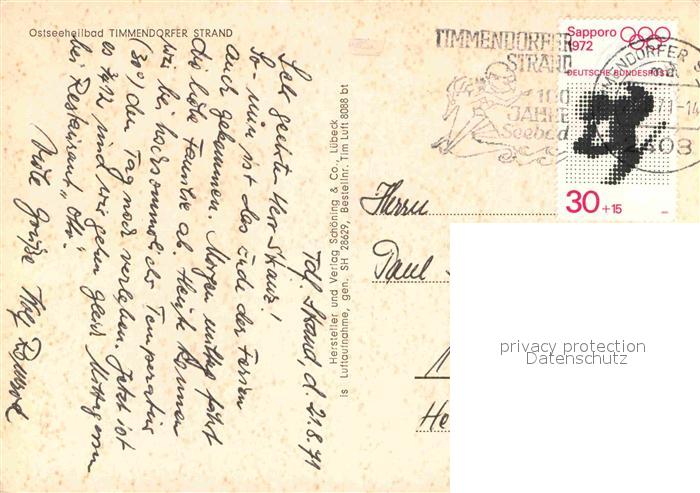 Ostseeheilbad TIMMENDORFER STRAND
Tdf. Strand, d. 21.8.71
Sehr geehrter Herr Strauz!
So nun ist das Ende der Ferien
auch gekommen. Morgen mittag fährt
die liebe Familie ab. Heute können
wir bei hochsommerlicher Temperatur
(30°) den Tag noch verleben. Jetzt ist
es ¾12 und wir gehen gleich Mittagessen
bei Restaurant „Otti“.
Viele Grüße Ihre
Hersteller und Verlag Schöning & Co., Lübeck
is Luftaufnahme, gen. SH 28629, Bestellnr. Tim Luft 8088 bt
TIMMENDORFER
STRAND
100
JAHRE
Seebad
Sapporo
1972
DEUTSCHE BUNDESPOST
30 +15
TIMMENDORFER S
71-14
2408
Herrn
Paul
He
privacy protection
Datenschutz